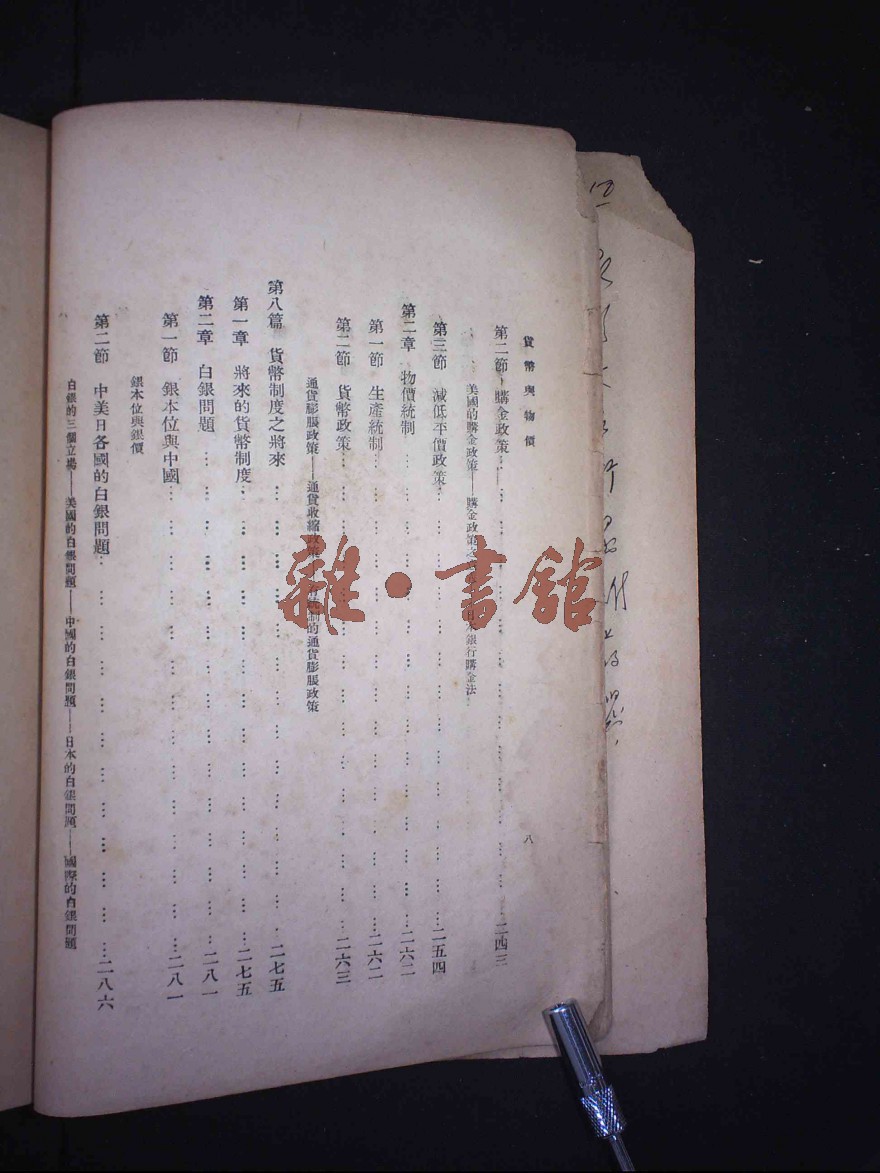 貨幣與物價
八
第二節 購金政策……二四三
美國的購金政策——購金政策之 日本銀行購金法
第三節 減低平價政策……二五四
第二章 物價統制……二六二
第一節 生產統制……二六二
第二節 貨幣政策……二六三
通貨膨脹政策——通貨收縮政策 統制的通貨膨脹政策
第八篇 貨幣制度之將來……二七五
第一章 將來的貨幣制度……二七五
第二章 白銀問題……二八一
第一節 銀本位與中國……二八一
銀本位與銀價
第二節 中美日各國的白銀問題……二八六
白銀的三個立場——美國的白銀問題——中國的白銀問題——日本的白銀問題——國際的白銀問題
雜·書館